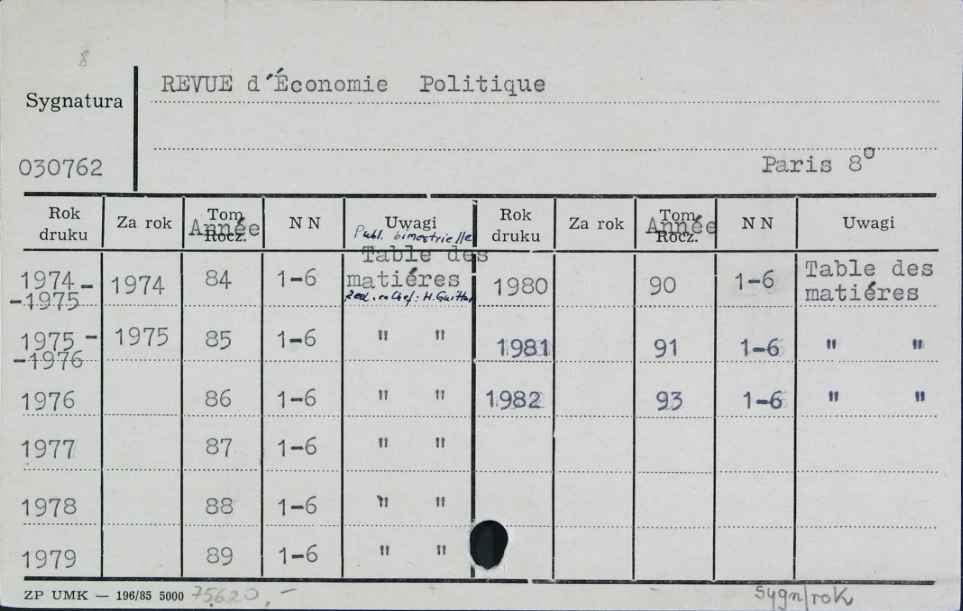 8
REVUE d'Économie Politique
Sygnatura
030762
Paris 8°
Rok druku Za rok Tom Rocz. Année N N Uwagi Rok druku Za rok Tom Rocz. Année N N Uwagi
Publ. bimestrielle
Table des matiéres
Red. en Chef: H. Guitton
1974-
-1975 1974 84 1-6 1980 90 1-6 Table des matiéres
1975-
-1976 1975 85 1-6 " " 1981 91 1-6 " "
1976 86 1-6 " " 1982 93 1-6 " "
1977 87 1-6 " "
1978 88 1-6 " "
1979 89 1-6 " "
ZP UMK — 196/85 5000 75620,- Sygn/rok